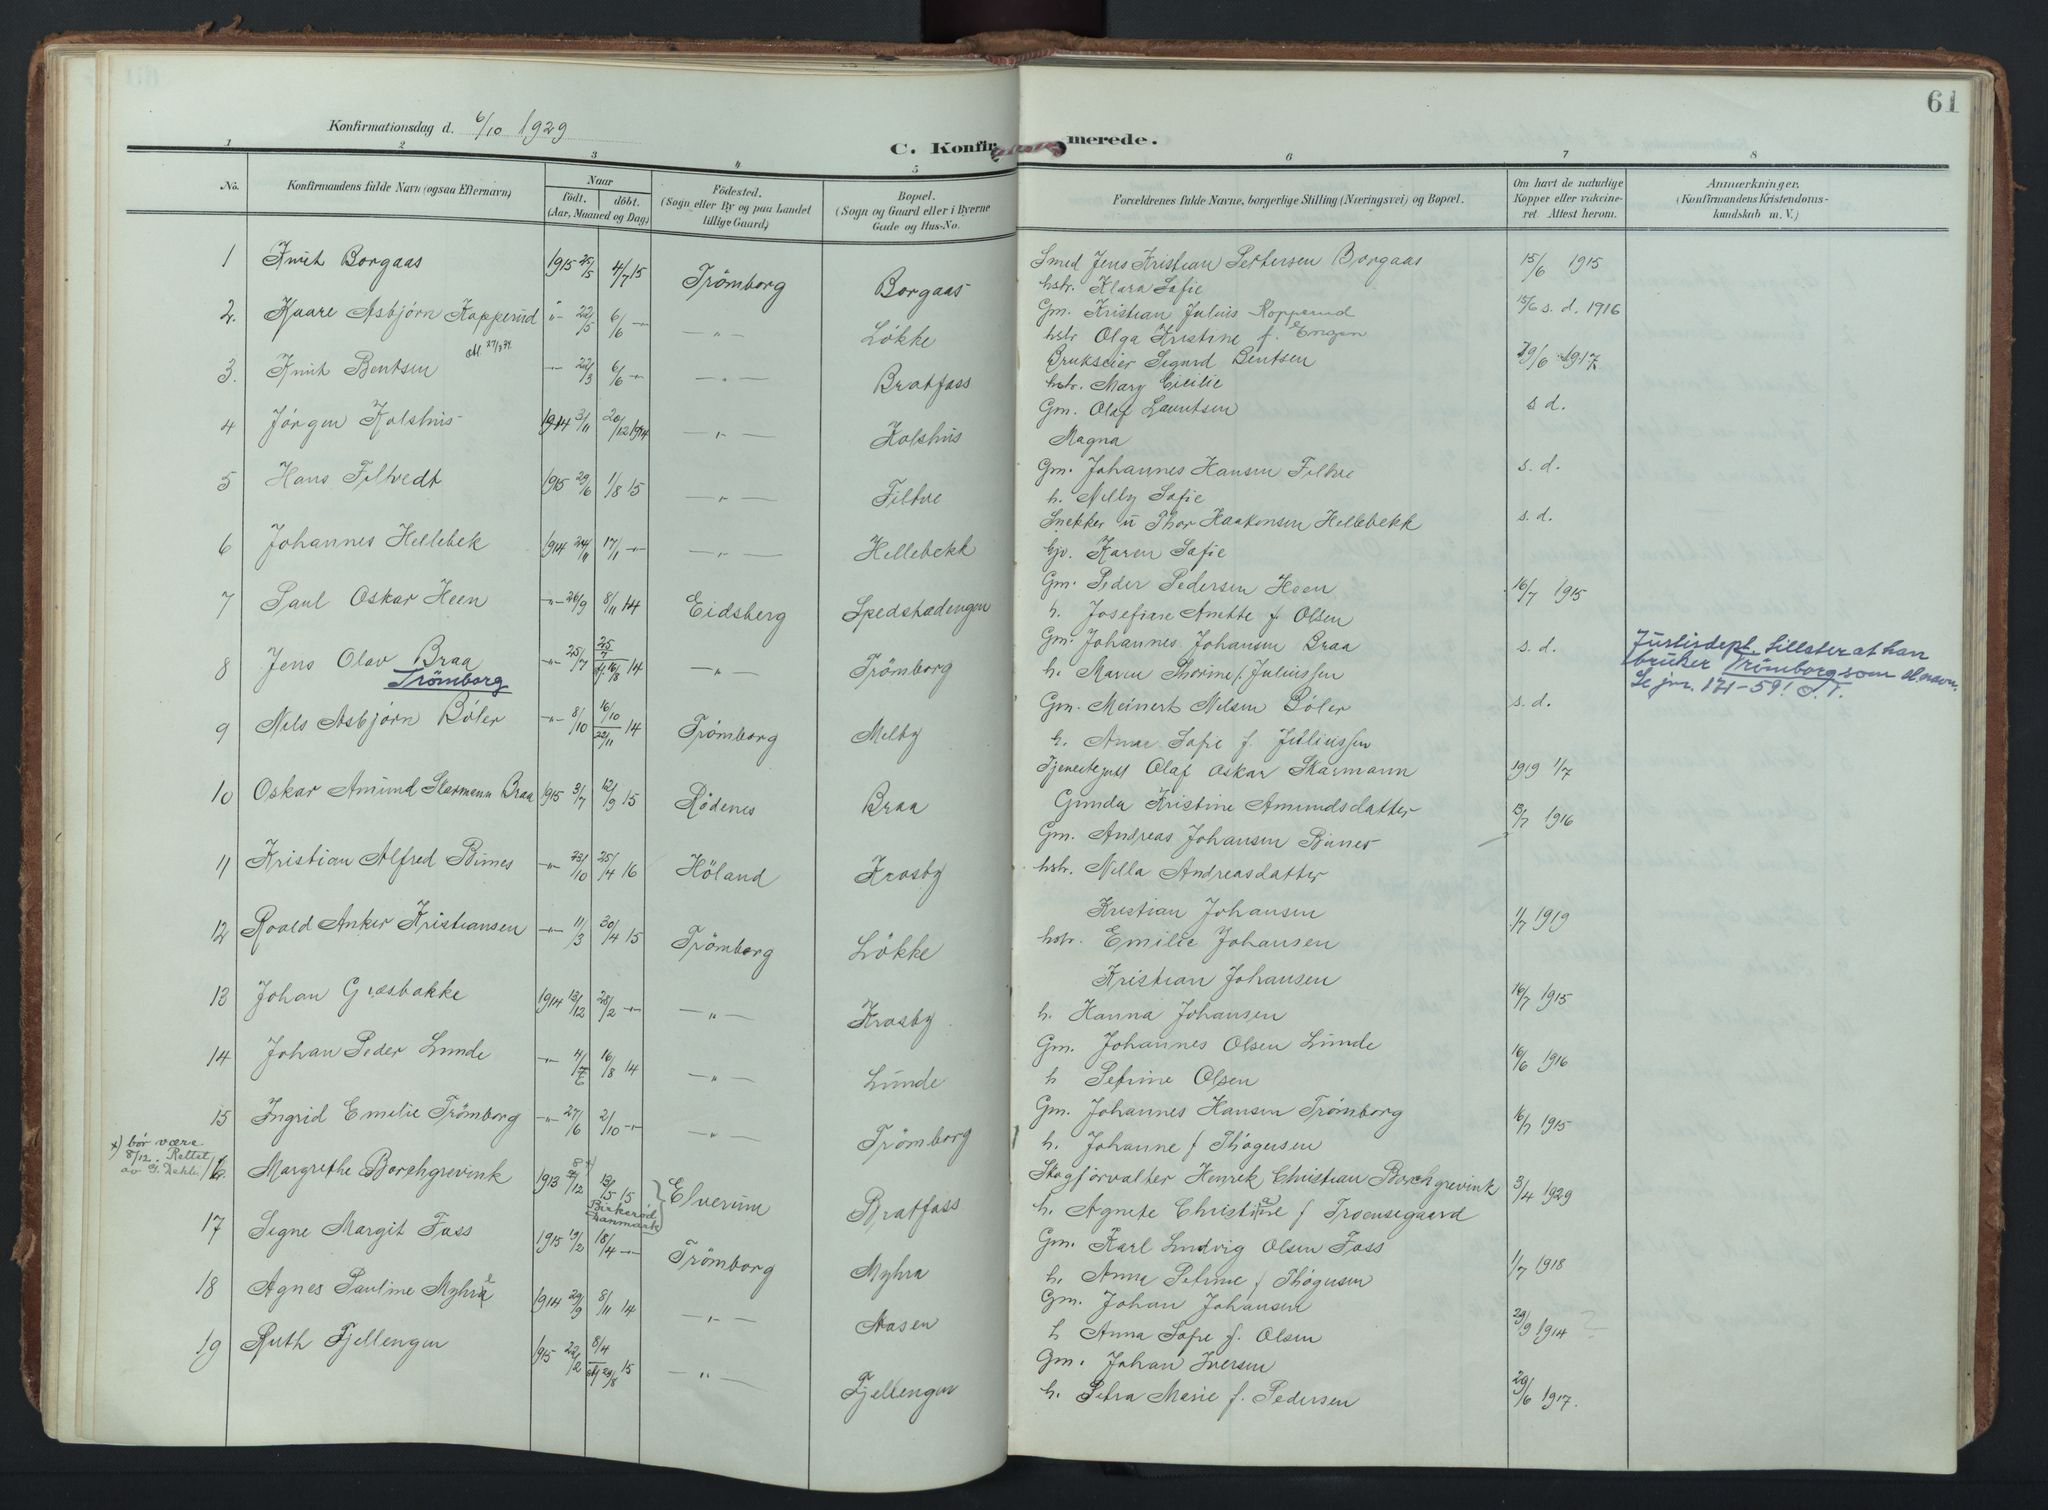 61
Konfirmationsdag d. 6/10 1929
C. Konfirmerede.
1 2 3 4 5 6 7 8
No. Konfirmandens fulde Navn (ogsaa Efternavn) Naar födt. döbt. (Aar, Maaned og Dag) Födested. (Sogn eller By og paa Landet tillige Gaard) Bopæl. (Sogn og Gaard eller i Byerne Gade og Hus-No. Forældrenes fulde Navne, borgerlige Stilling (Næringsvei) og Bopæl. Om havt de naturlige Kopper eller vakcineret. Attest herom. Anmærkninger. (Konfirmandens Kristendomskundskab m. V.)
1 Knut Borgaas 1915 25/5 4/7 15 Trömborg Borgaas Smed Jens Kristian Pettersen Borgaas 15/6 1915
hstr. Klara Sofie
2. Kaare Asbjörn Kopperud -"- 22/5 6/6 -"- -"- Lökke Gm. Kristian Julius Kopperud 15/6 s. d. 1916
hstr Olga Kristine f. Engen
3. Knut Bentsen -"- 22/3 6/6 -"- -"- Bratfass Brukseier Sigurd Bentsen 29/6 1917
hstr. Mary Cicilie
4 Jörgen Kolshus 1914 3/11 20/12 1914 -"- Kolshus Gm. Olaf Lauritsen s d.
Magna
5 Hans Filtvedt 1915 29/6 1/8 15 -"- Filtve Gm. Johannes Hansen Filtve s. d.
h. Nilly Sofie
6 Johannes Hellebek 1914 24/11 17/1 -"- -"- Hellebekk Snekker u Thor Haakonsen Hellebekk s. d.
Gjv. Karen Sofie
7 Paul Oskar Heen -"- 26/9 8/11 14 Eidsberg Spedstadengen Gm. Peder Pedersen Heen 16/7 1915
h. Josefine Anette f. Olsen
8 Jens Olav Braa -"- 25/7 25/7 16/8 14 -"- Trömborg Gm. Johannes Johansen Braa s. d. Justisdept. tillater at han
Trömborg h. Maren Thorine f. Juliussen bruker Trömborg som sl.navn.
Se jnr. 171-59!
9 Nils Asbjörn Böler -"- 8/10 16/10 22/11 14 Trömborg Melby Gm. Meinert Nilsen Böler s. d.
h. Anna Sofie f. Juliussen
10 Oskar Amund Skarmann Braa 1915 3/7 12/9 15 Rödenes Braa Tjenestegutt Olaf Oskar Skarmann 1919 1/7
Gunda Kristine Amundsdatter
11 Kristian Alfred Bunes -"- 23/10 25/4 16 Höland Krosby Gm. Andreas Johansen Bunes 13/7 1916
hstr. Nilla Andreasdatter
12 Roald Anker Kristiansen -"- 11/3 30/4 15 Trömborg Lökke Kristian Johansen 1/7 1919
hstr. Emilie Johansen
13 Johan Græsbakke 1914 13/12 28/2 -"- -"- Krosby Kristian Johansen 16/7 1915
h. Hanna Johansen
14 Johan Peder Lunde -"- 16/8 14 -"- Lunde Gm. Johannes Olsen Lunde 16/6 1916
h Petrine Olsen
15 Ingrid Emilie Trömborg -"- 27/6 2/10 -"- -"- Trömborg Gm. Johannes Hansen Trömborg 16/7 1915
h. Johanne f Thögersen
x) bör være
8/12. Rettet
av
16. Margrethe Borchgrevink 1913 8/12 x) 13/5 15 Birkeröd Danmark Elverum Bratfass Skogforvalter Henrik Christian Borchgrevink 3/4 1929
h. Agnete Christine f Troensegaard
17 Signe Margit Foss 1915 19/2 18/4 -"- Trömborg Myhra Gm. Karl Ludvig Olsen Foss 1/7 1918
h. Anna Petrine f Thögersen
18 Agnes Pauline Myhra 1914 29/9 8/11 14 -"- Aasen Gm. Johan Johansen 29/9 1914 ?
h Anna Sofie f. Olsen
19 Ruth Fjellengen 1915 22/2 8/4 29/8 15 -"- Fjellengen Gm. Johan Iversen
h. Petra Marie f. Pedersen 29/6 1917.